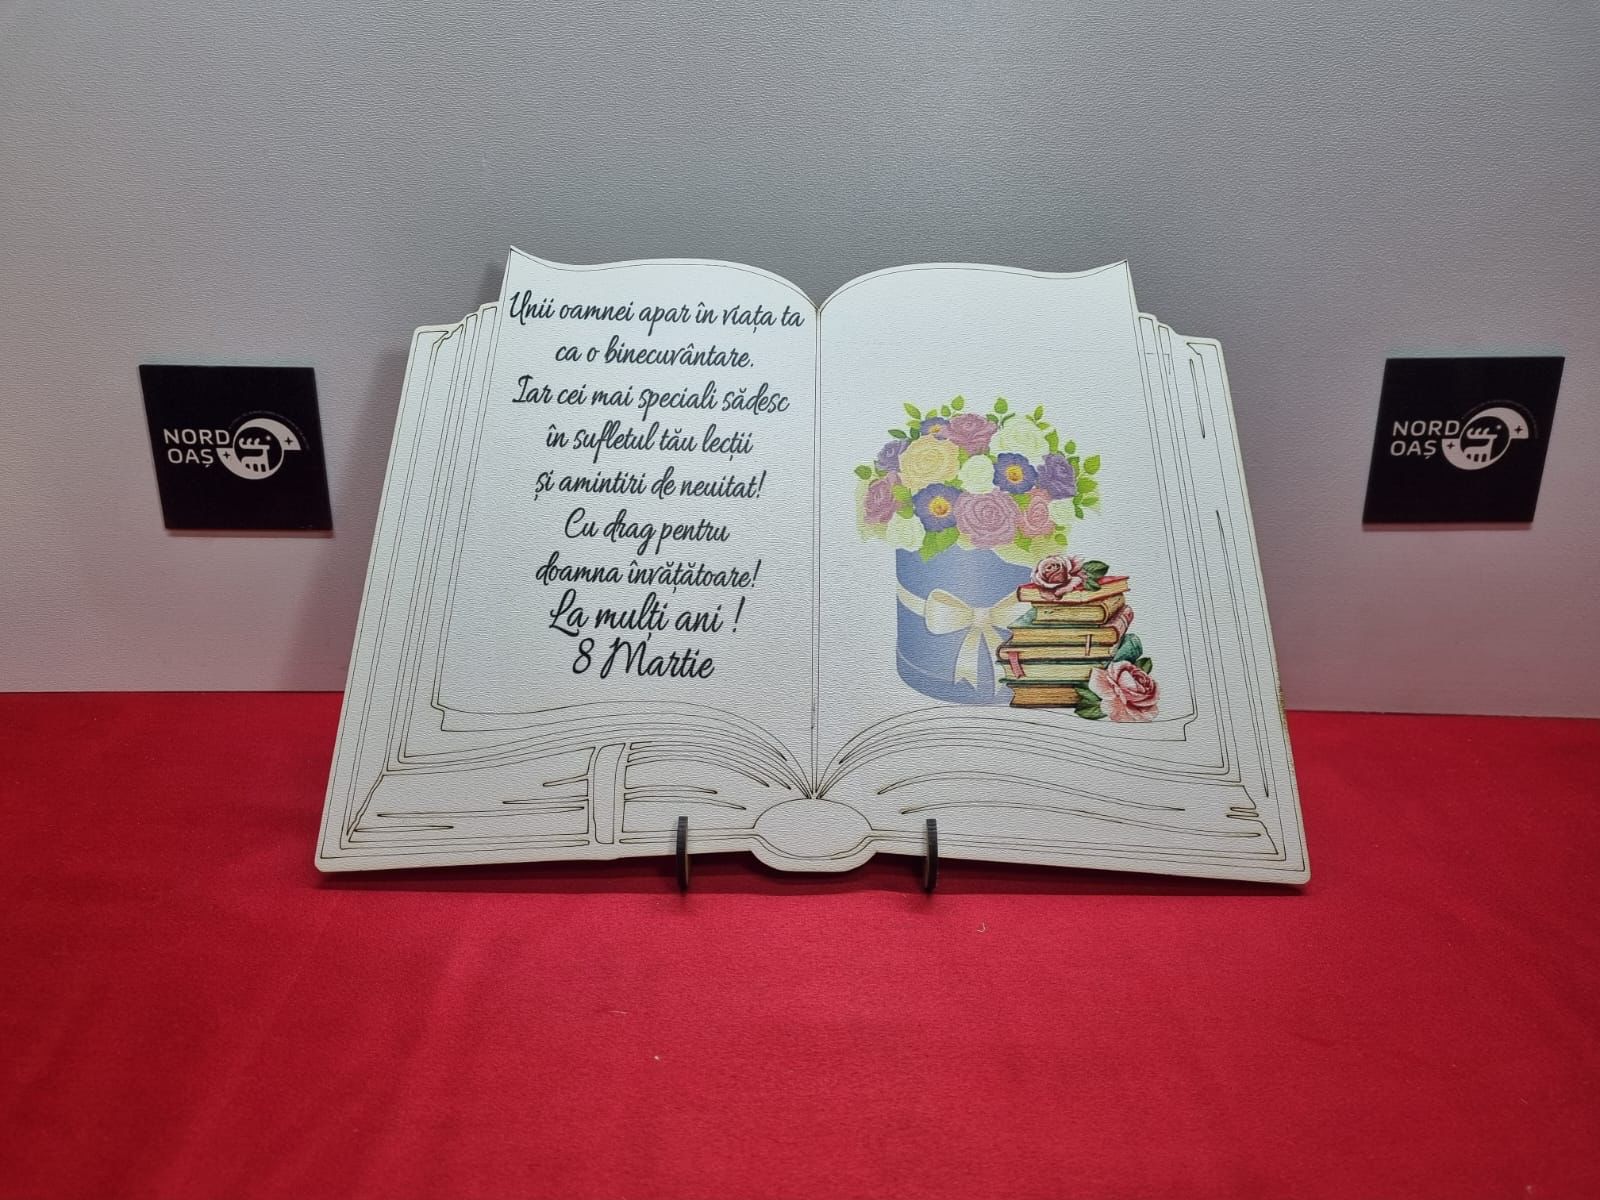 Unii oamnei apar în viața ta
ca o binecuvântare.
Iar cei mai speciali sădesc
în sufletul tău lecții
și amintiri de neuitat!
Cu drag pentru
doamna învățătoare!
La mulți ani !
8 Martie
NORD
OAȘ
NORD
OAȘ